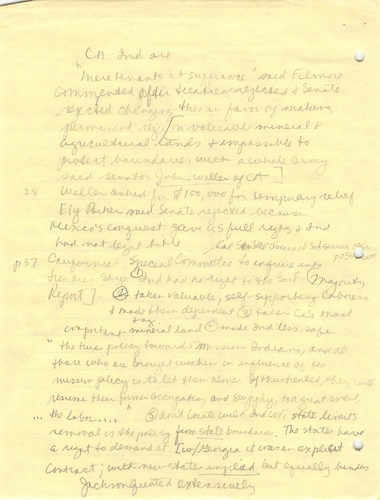 CA Ind are
"mere tenants at sufferance" said Fillmore
Commented after treaties rejected & Senate
rejected changing this in favor of making
permanent res / on valuable mineral &
agricultural lands & impossible to
protect boundaries with a whole army
said senator John Weller of CA ]
28 Weller asked for $100,000 for temporary relief
Ely Parker said Senate rejected because
Mexico's conquest gave US full rights & Ind
had not legal title Cal Senate Journal 3rd session
p37 California Special Committee to enquire into
treaties says ① Ind had no right to the soil (Majority
Report] ② taken valuable, self-supporting laborers
& made them dependent ③ taken Cal's most
important mineral land ④ made Ind less safe
"the true policy towards Mission Indians, and all
those who are brought within influence of the
mission policy is to let them alone. If thus treated, they will
resume their former occupation, and supply, to a great extent
... the labor...." ⑤ don't locate wild Ind w/i state limits
removal is the policy from state boundaries. The states have
a right to demand it [w/Georgia it was an explicit
Contract; with new states implied but equally binding
Jackson quoted extensively